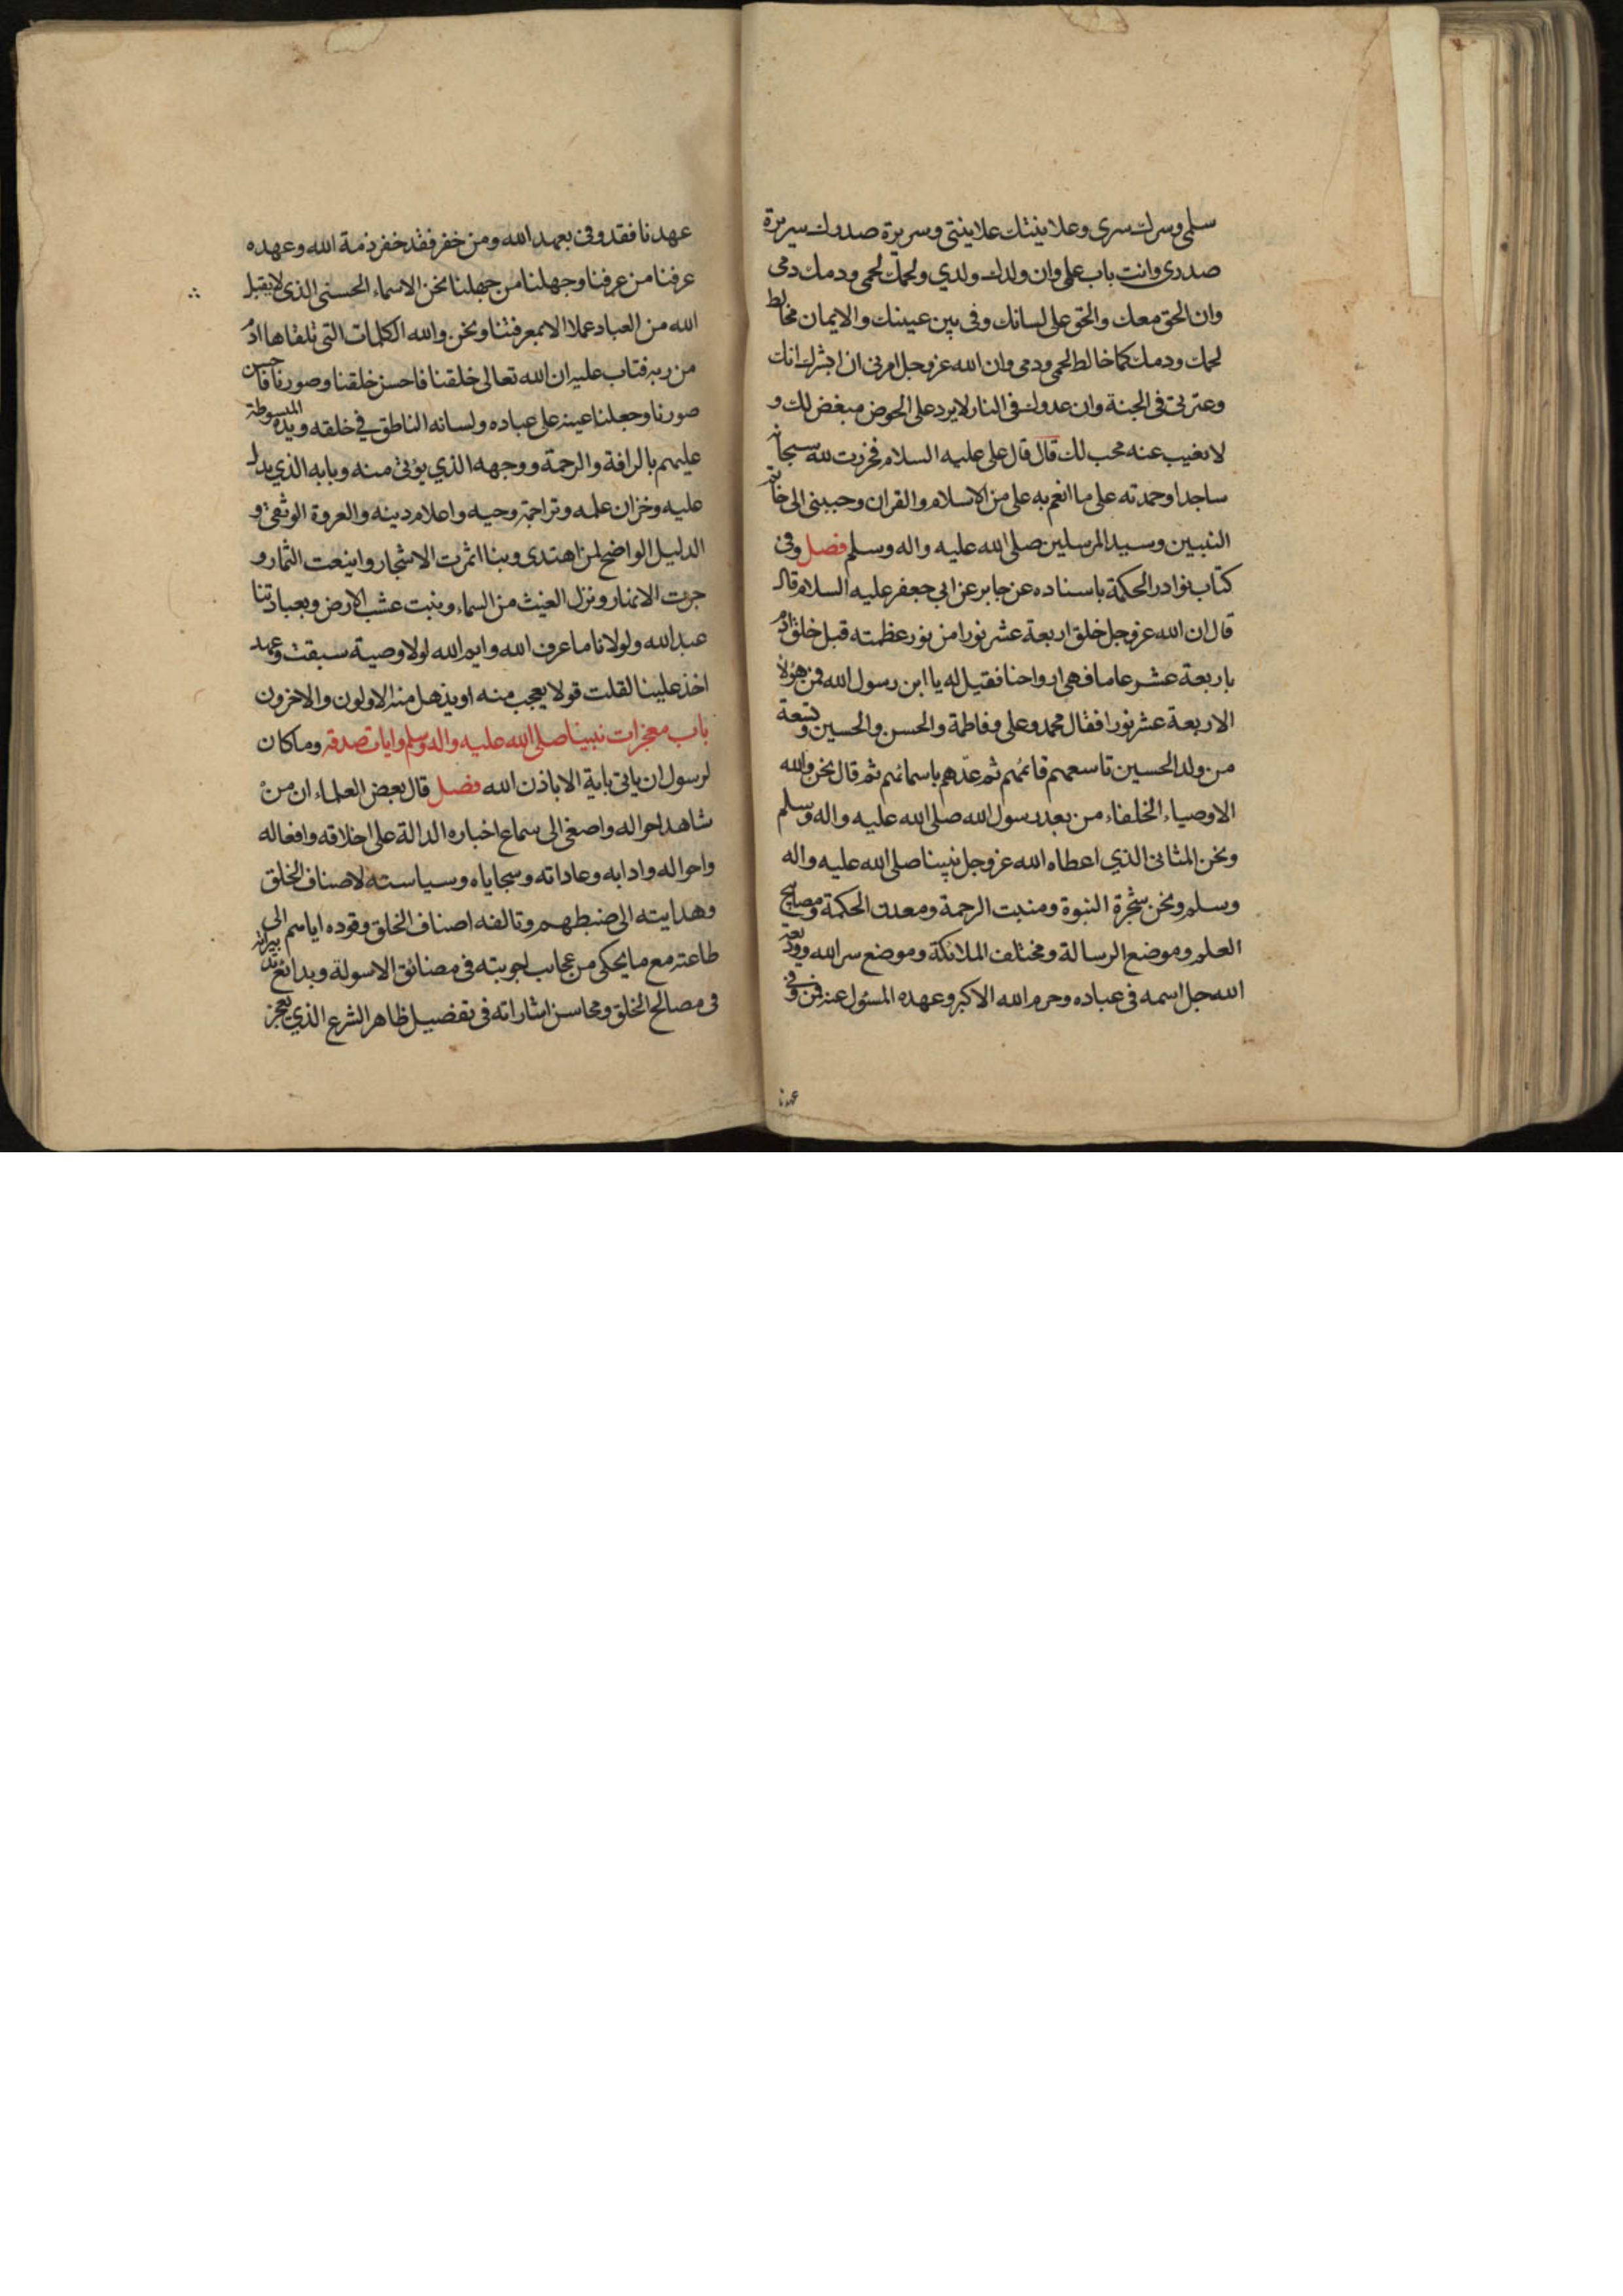 سلمي وسرك سرى وعلانيتك علانيتى وسريرة صدرك سريرة
صدرى وانت باب علمي وان ولدك ولدي ولحمك لحمى ودمك دمى
وان الحق معك والحق على لسانك وفى بين عينيك والايمان مخالط
لحمك ودمك كما خالط لحمى ودمى وان الله عز وجل امرنى ان ابشرك انك
وعترتى فى الجنة وان عدوك فى النار لا يرد على الحوض مبغض لك و
لا يغيب عنه محب لك قال قال على عليه السلام فخررت لله سبحانه
ساجدا وحمدته على ما انعم به على من الاسلام والقران وحببنى الى خاتم
النبيين وسيد المرسلين صلى الله عليه واله وسلم فصل وفى
كتاب نوادر الحكمة باسناده عن جابر عن ابي جعفر عليه السلام قال
قال ان الله عز وجل خلق اربعة عشر نورا من نور عظمته قبل خلق ادم
باربعة عشر عاما فهى ارواحنا فقيل له يا ابن رسول الله فمن هؤلاء
الاربعة عشر نورا فقال محمد وعلى وفاطمة والحسن والحسين وتسعة
من ولد الحسين تاسعهم قائمهم ثم عدهم باسمائهم ثم قال نحن والله
الاوصياء الخلفاء من بعد رسول الله صلى الله عليه واله وسلم
ونحن المثانى الذي اعطاه الله عز وجل نبينا صلى الله عليه واله
وسلم ونحن شجرة النبوة ومنبت الرحمة ومعدن الحكمة ومصابيح
العلم وموضع الرسالة ومختلف الملائكة وموضع سر الله ووديعة
الله جل اسمه فى عباده وحرم الله الاكبر وعهده المسئول عنه فمن وفى
عهدنا
عهدنا فقد وفى بعهد الله ومن خفر فقد خفر ذمة الله وعهده
عرفنا من عرفنا وجهلنا من جهلنا نحن الاسماء الحسنى الذى لا يقبل
الله من العباد عملا الا بمعرفتنا ونحن والله الكلمات التى تلقاها ادم
من ربه فتاب عليه ان الله تعالى خلقنا فاحسن خلقنا وصورنا فاحسن
صورنا وجعلنا عينه على عباده ولسانه الناطق في خلقه ويده المبسوطة
عليهم بالرافة والرحمة ووجهه الذي يؤتى منه وبابه الذي يدل
عليه وخزان علمه وتراجمة وحيه واعلام دينه والعروة الوثقى و
الدليل الواضح لمن اهتدى وبنا اثمرت الاشجار واينعت الثمار و
جرت الانهار ونزل الغيث من السماء ونبت عشب الارض وبعبادتنا
عبد الله ولولانا ما عرف الله وايم الله لولا وصية سبقت وعهد
اخذ علينا لقلت قولا يعجب منه او يذهل منه الاولون والاخرون
باب معجزات نبينا صلى الله عليه واله وسلم وايات صدقه وما كان
لرسول ان ياتى باية الا باذن الله فصل قال بعض العلماء ان من
شاهد احواله واصغى الى سماع اخباره الدالة على اخلاقه وافعاله
واحواله وادابه وعاداته وسجاياه وسياسته لاصناف الخلق
وهدايته الى ضبطهم وتالفه اصناف الخلق وقوده اياهم الى
طاعته مع ما يحكى من عجايب اجوبته فى مضائق الاسولة وبدائع تدبيراته
فى مصالح الخلق ومحاسن اشاراته فى تفضيل ظاهر الشرع الذي يعجز